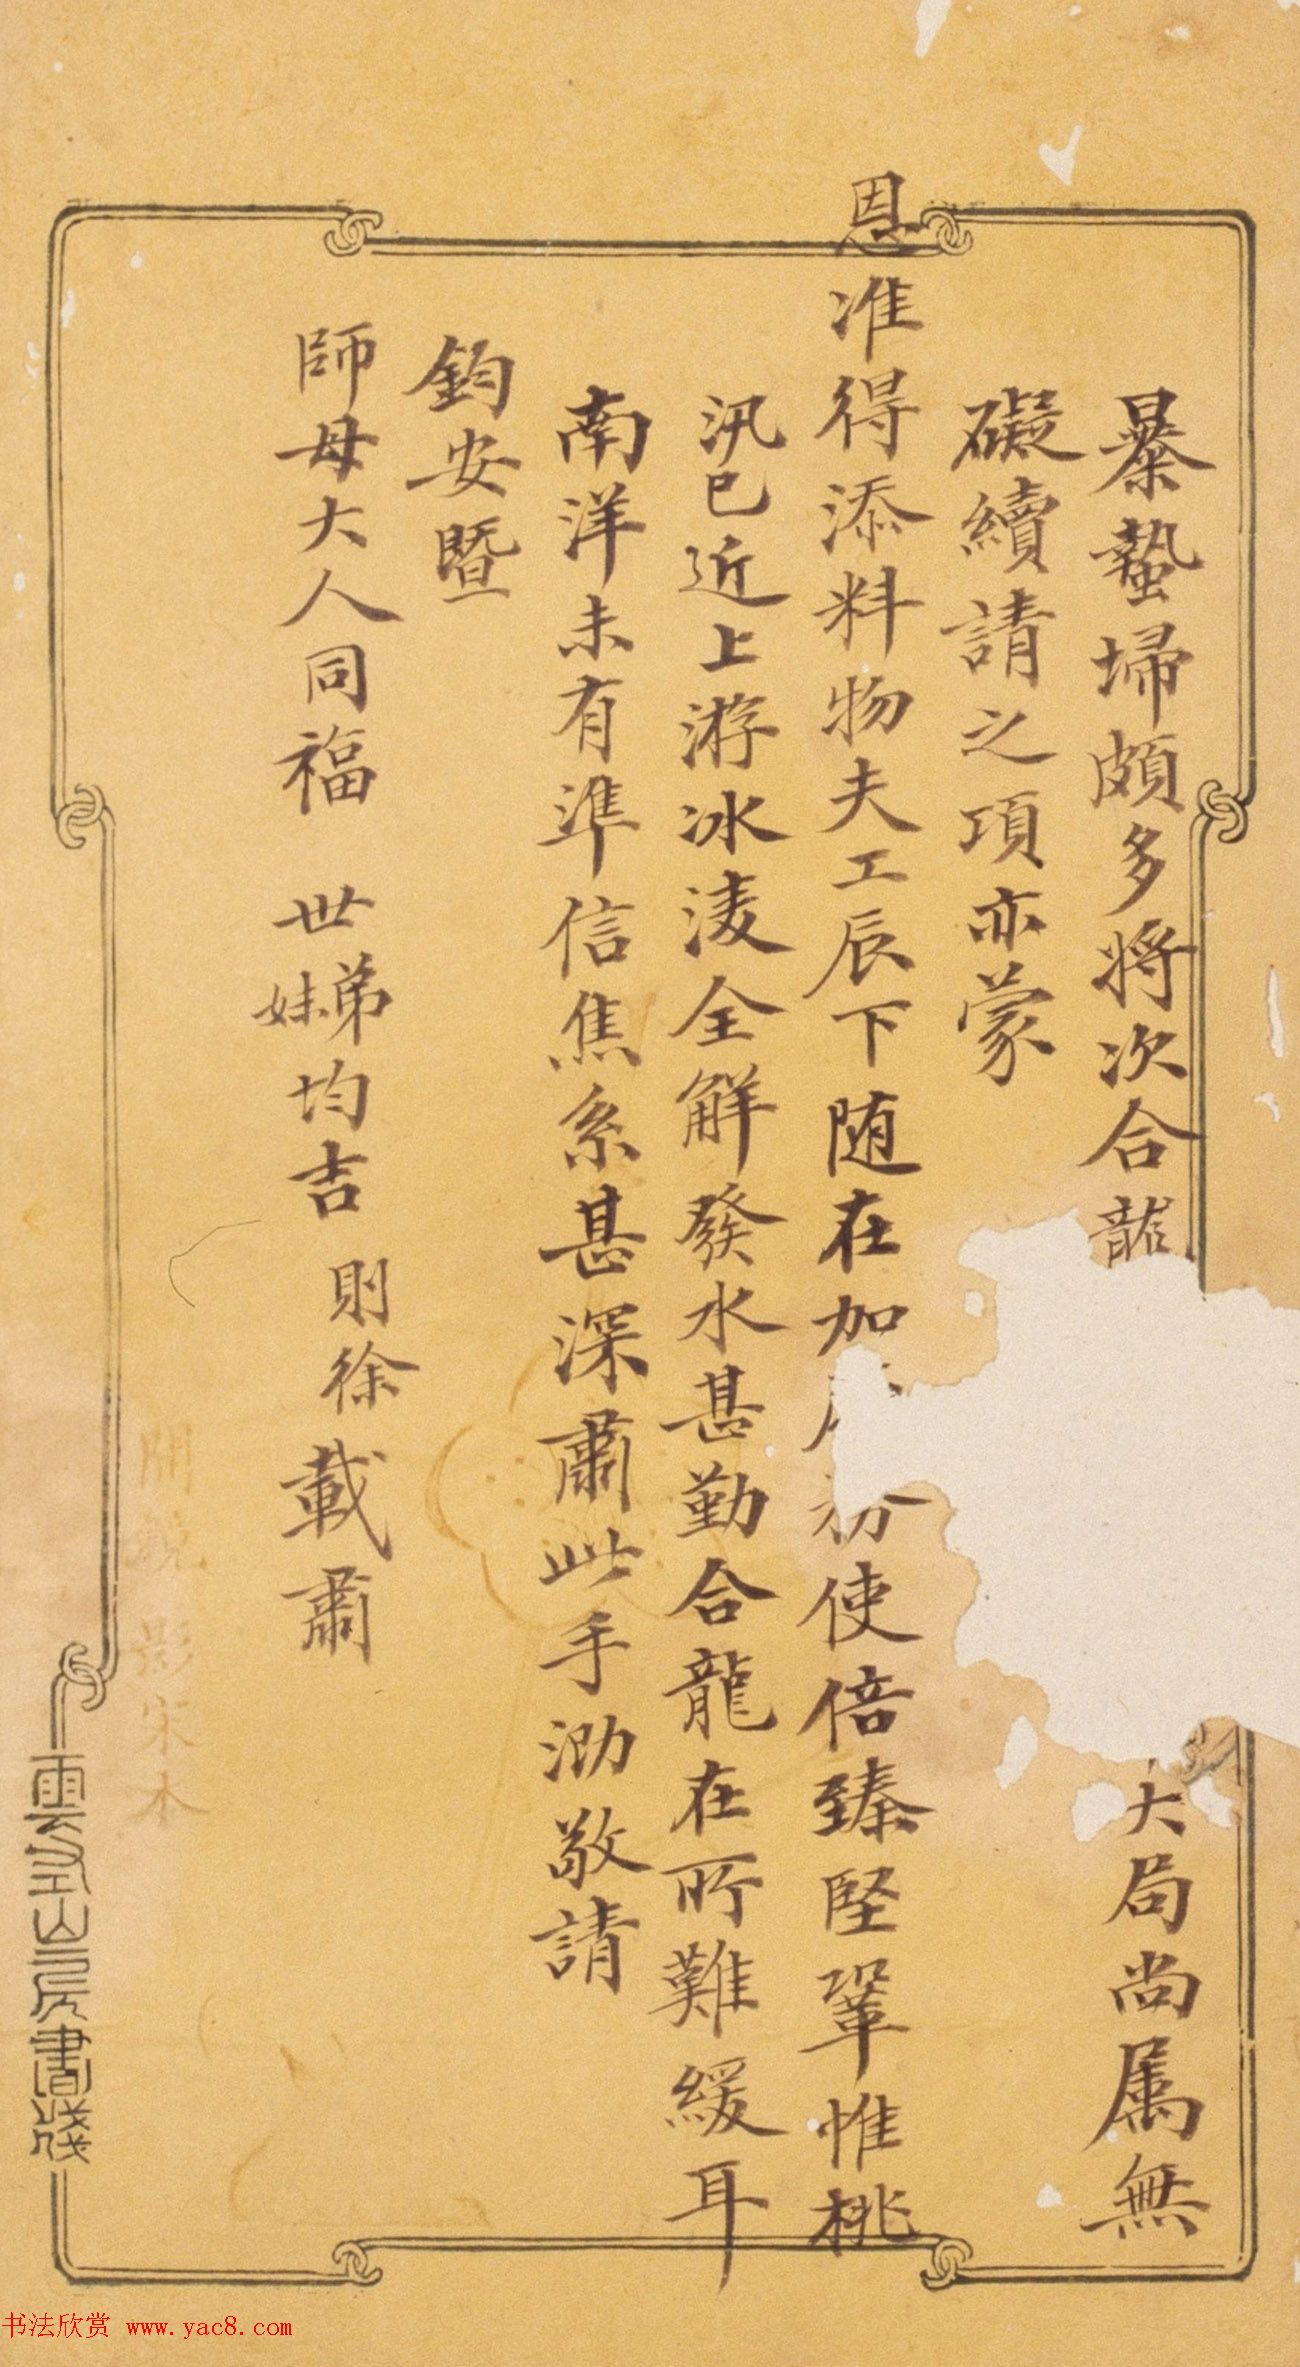 暴蟄埽頗多將次合龍
大局尚属無
礙續請之項亦蒙
恩准得添料物夫工辰下随在加
使倍臻堅鞏惟桃
汛已近上游冰淩全解發水甚勤合龍在所難緩耳
南洋未有準信焦系甚深肅此手泐敬請
鈞安暨
師母大人同福 世弟妹均吉 則徐載肅
開 影宋本
雲左山房書牋
书法欣赏 www.yac8.com